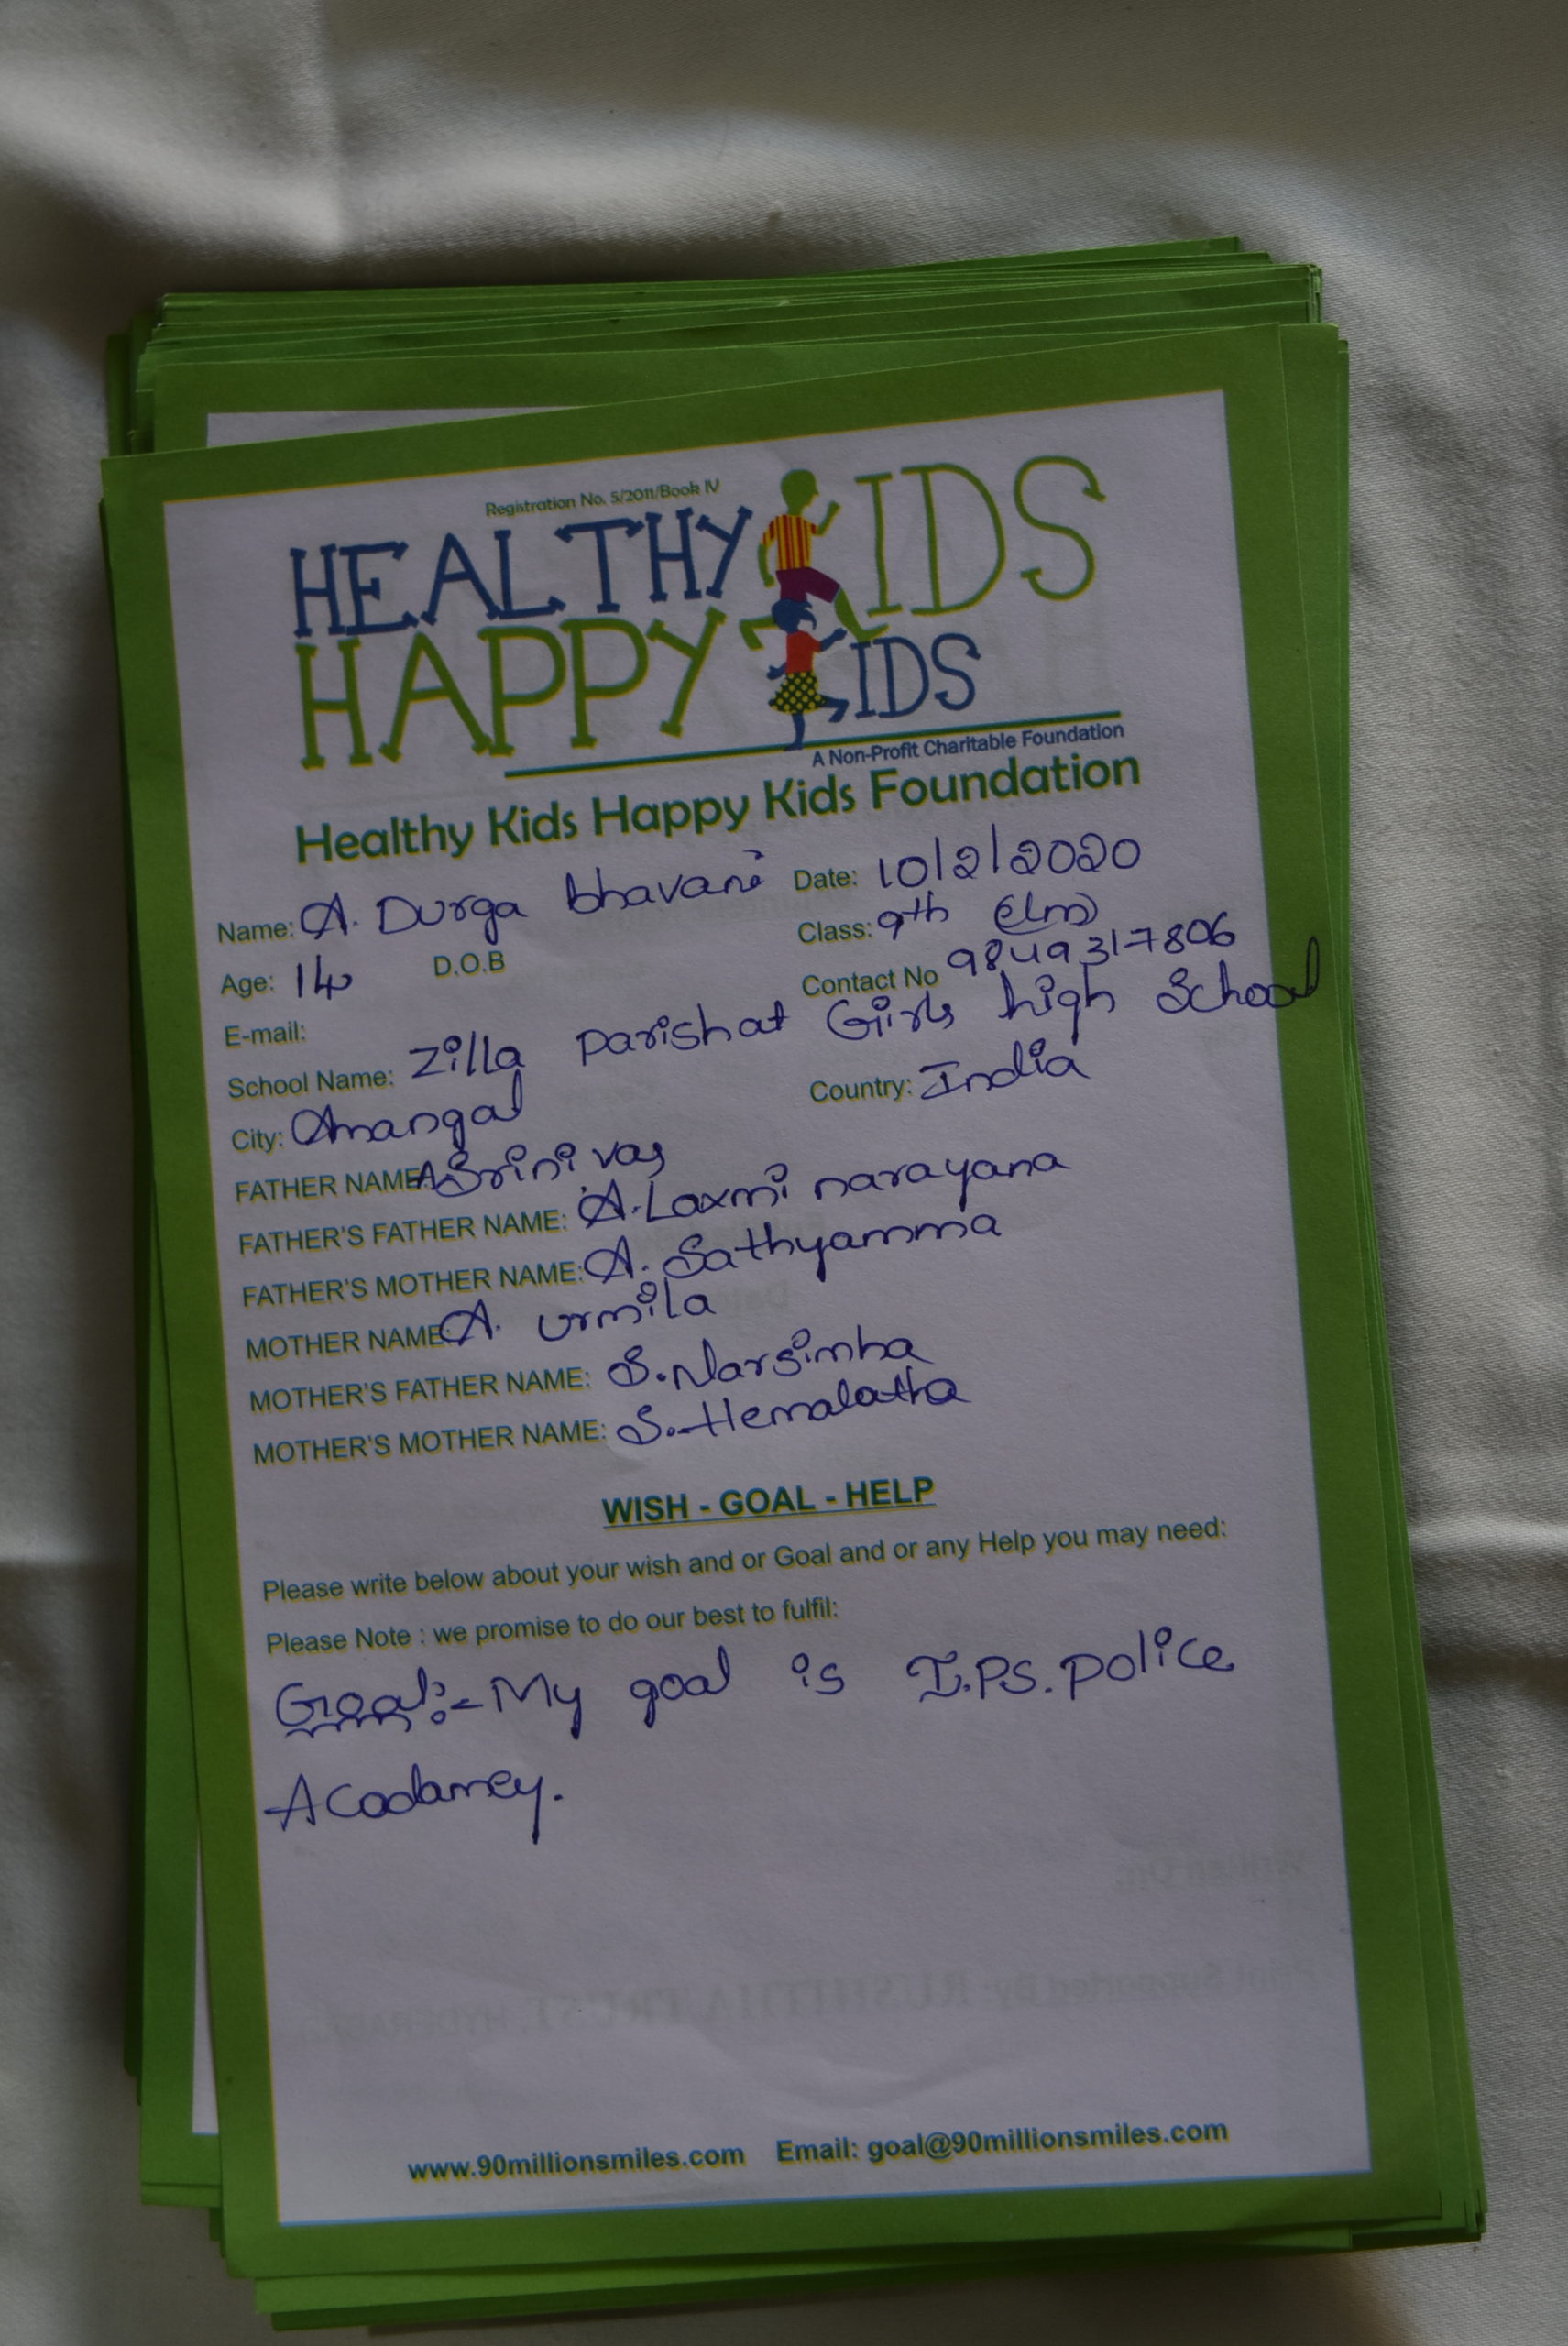 Registration No. 5/2011/Book IV
HEALTHY KIDS
HAPPY KIDS
A Non-Profit Charitable Foundation
Healthy Kids Happy Kids Foundation
Name: A. Durga bhavani Date: 10/2/2020
Class: 9th E/m
Age: 14 D.O.B Contact No 9849317806
E-mail:
School Name: Zilla Parishat Girls high School
City: Amangal Country: India
FATHER NAME: A Srinivas
FATHER'S FATHER NAME: A. Laxmi narayana
FATHER'S MOTHER NAME: A. Sathyamma
MOTHER NAME: A. urmila
MOTHER'S FATHER NAME: S. Narsimha
MOTHER'S MOTHER NAME: S. Hemalatha
WISH - GOAL - HELP
Please write below about your wish and or Goal and or any Help you may need:
Please Note : we promise to do our best to fulfil:
Goal:- My goal is I.PS. police
Acadamey.
www.90millionsmiles.com Email: goal@90millionsmiles.com